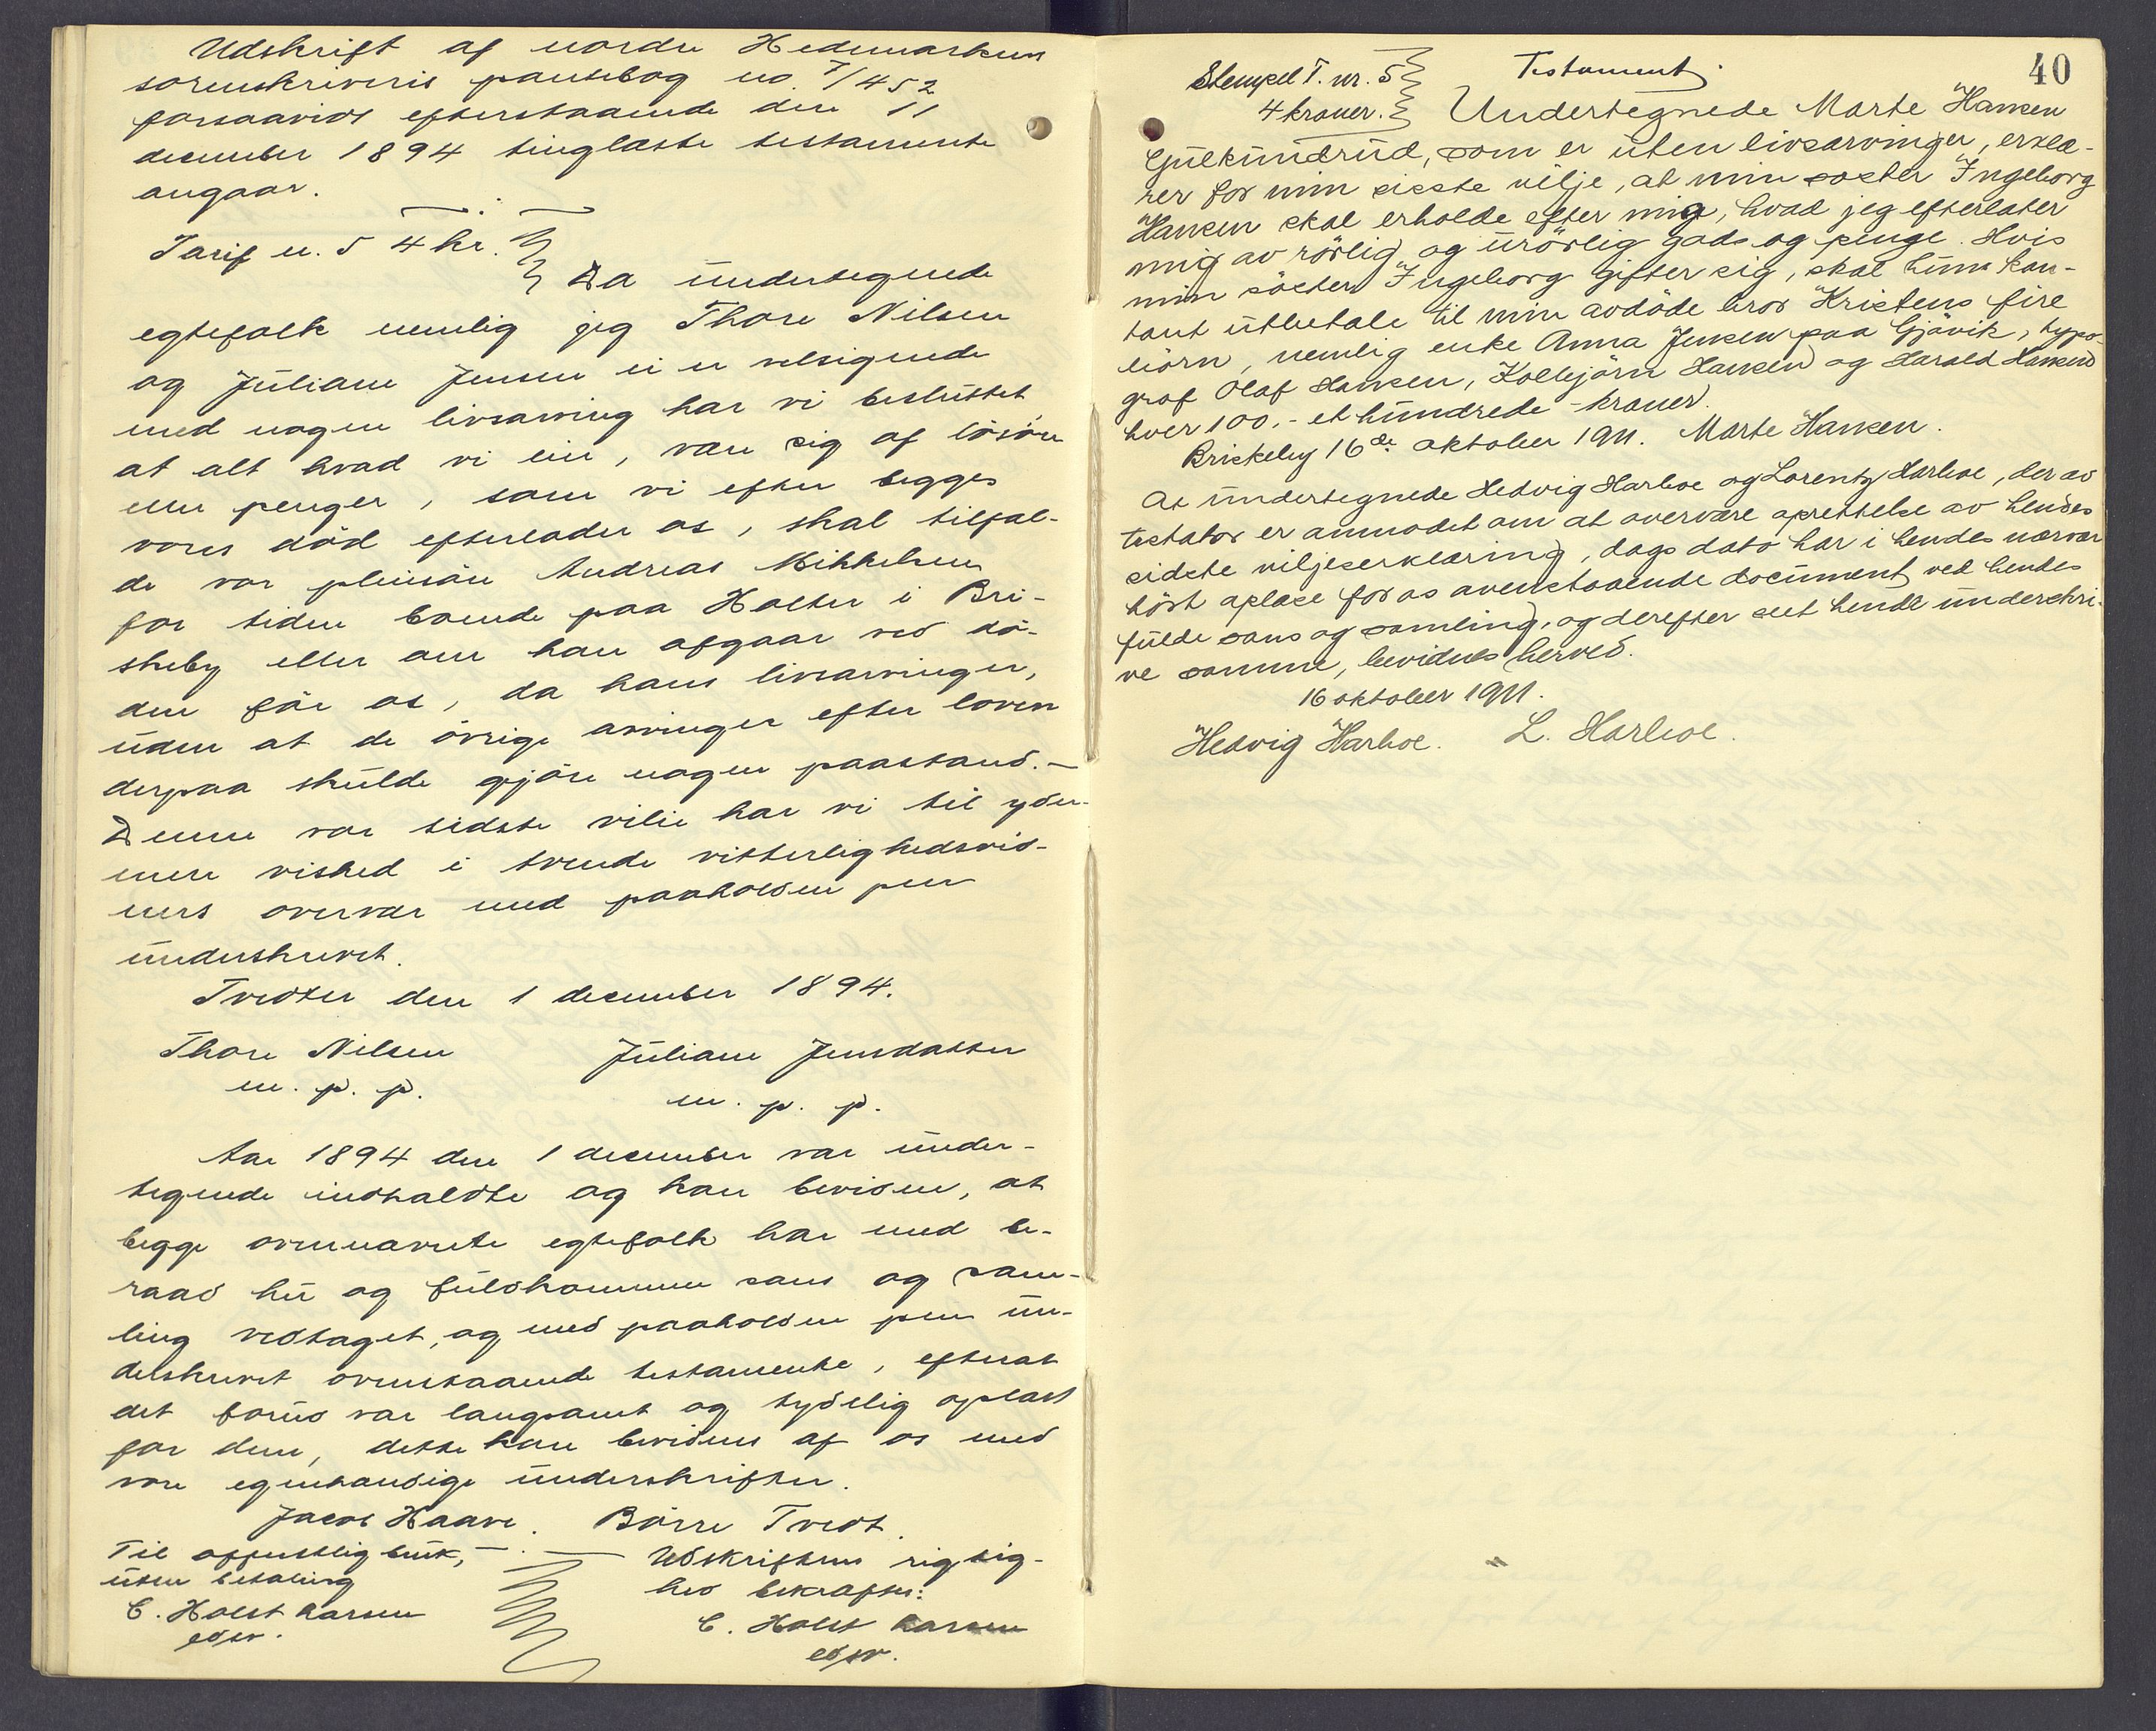 Udskrift af nordre Hedemarkens
sorenskriveris pantebog no. 7/452
forsaavidt efterstaaende den 11
december 1894 tinglæste testamente
angaar.
Tarif n. 5 4 kr.
Da undertegnede
egtefolk nemlig jeg Thore Nilsen
og Juliane Jensen ei er velsignede
med nogen livsarving har vi besluttet,
at alt hvad vi eie, være sig af lösöre
eller penger, som vi efter begges
vores död efterlader os, skal tilfal-
de vor pleiesön Andreas Mikkelsen
for tiden boende paa Holter i Bri-
skeby eller om han afgaar ved dö-
den för os, da hans livsarvinger,
uden at de övrige arvinger efter loven
derpaa skulde gjöre nogen paastand. —
Denne vor sidste vilie har vi til yder-
mere vished i tvende vitterlighedsvid-
ners overvær med paaholden pen
underskrevet.
Tvedter den 1 december 1894.
Thore Nilsen Juliane Jensdatter
m. p. p. m. p. p.
Aar 1894 den 1 december var under-
tegnede indkaldte og kan bevidne, at
begge ovennævnte egtefolk har med be-
raad hu og fuldkommen sans og sam-
ling vedtaget, og med paaholden pen un-
derskrevet ovenstaaende testamente, efterat
det forud var langsomt og tydelig oplæst
for dem, dette kan bevidnes af os med
vore egenhændige underskrifter.
Jacob Haave. Börre Tvedt.
Til offentlig bruk, Udskriftens rigtig-
uten betaling hed bekræftes:
C. Holst Larsen C. Holst Larsen
edsv. edsv.
40
Stempel T. nr. 5 Testament.
4 kroner. Undertegnede Marte Hansen
Gulkundrud, som er uten livsarvinger, erklæ-
rer for min sidste vilje, at min søster Ingeborg
Hansen skal erholde efter mig, hvad jeg efterlater
mig av rörlig og urörlig gods og penge. Hvis
min söster Ingeborg gifter sig, skal hun kon-
tant utbetale til min avdöde bror Kristens fire
börn, nemlig enke Anna Jensen paa Gjövik, typo-
graf Olaf Hansen, Kolbjörn Hansen og Harald Hansen
hver 100,- et hundrede - kroner.
Briskeby 16de oktober 1911. Marte Hansen.
At undertegnede Hedvig Harboe og Lorentz Harboe, der av
testator er anmodet om at overvære oprettelse av hendes
sidste viljeserklæring, dags dato har i hendes nærvær
hört oplæse for os ovenstaaende document ved hendes
fulde sans og samling, og derefter set hende underskri-
ve samme, bevidnes herved.
16 oktober 1911.
Hedvig Harboe. L. Harboe.